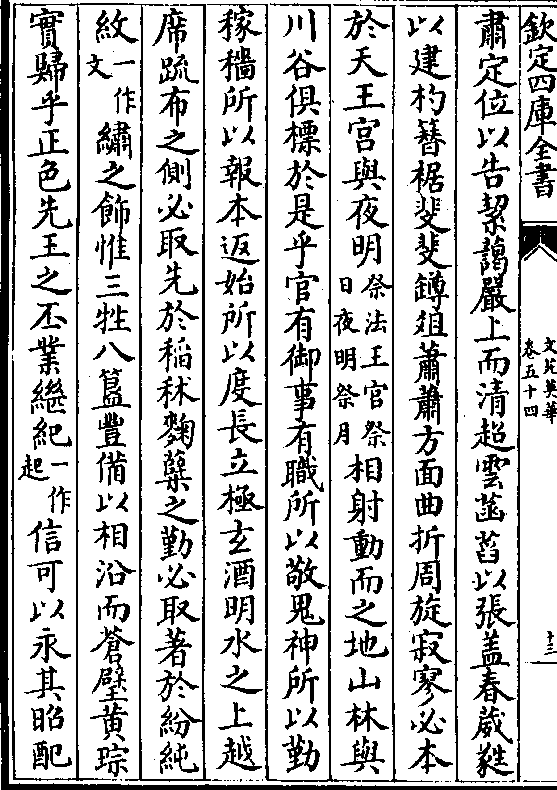 欽定四庫全書
文苑英華
卷五十四
十三
肅定位以告絜藹嚴上而清超雲菡萏以張盖春葳蕤
以建杓簪裾斐斐鐏俎蕭蕭方面曲折周旋寂寥必本
於天王宫與夜明祭法王宫祭日夜明祭月相射動而之地山林與
川谷俱標於是乎官有御事有職所以敬鬼神所以勤
稼穡所以報本返始所以度長立極玄酒明水之上越
席疏布之側必取先於稲秫麴蘖之勤必取著於紛純
紋一作文繡之飾惟三牲八簋豐備以相沿而蒼壁黄琮
實歸乎正色先王之丕業繼紀一作起信可以永其昭配